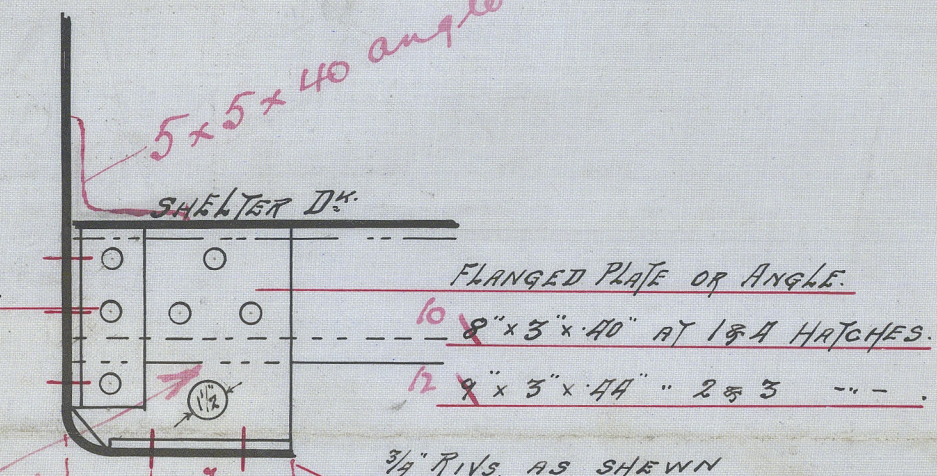 5 x 5 x 40 angle
SHELTER DK.
FLANGED PLATE OR ANGLE.
10 8" x 3" x .40" AT 1 & 4 HATCHES.
12 9" x 3" x .44" " 2 & 3 -"- .
1½"
3/4" RIVS. AS SHEWN